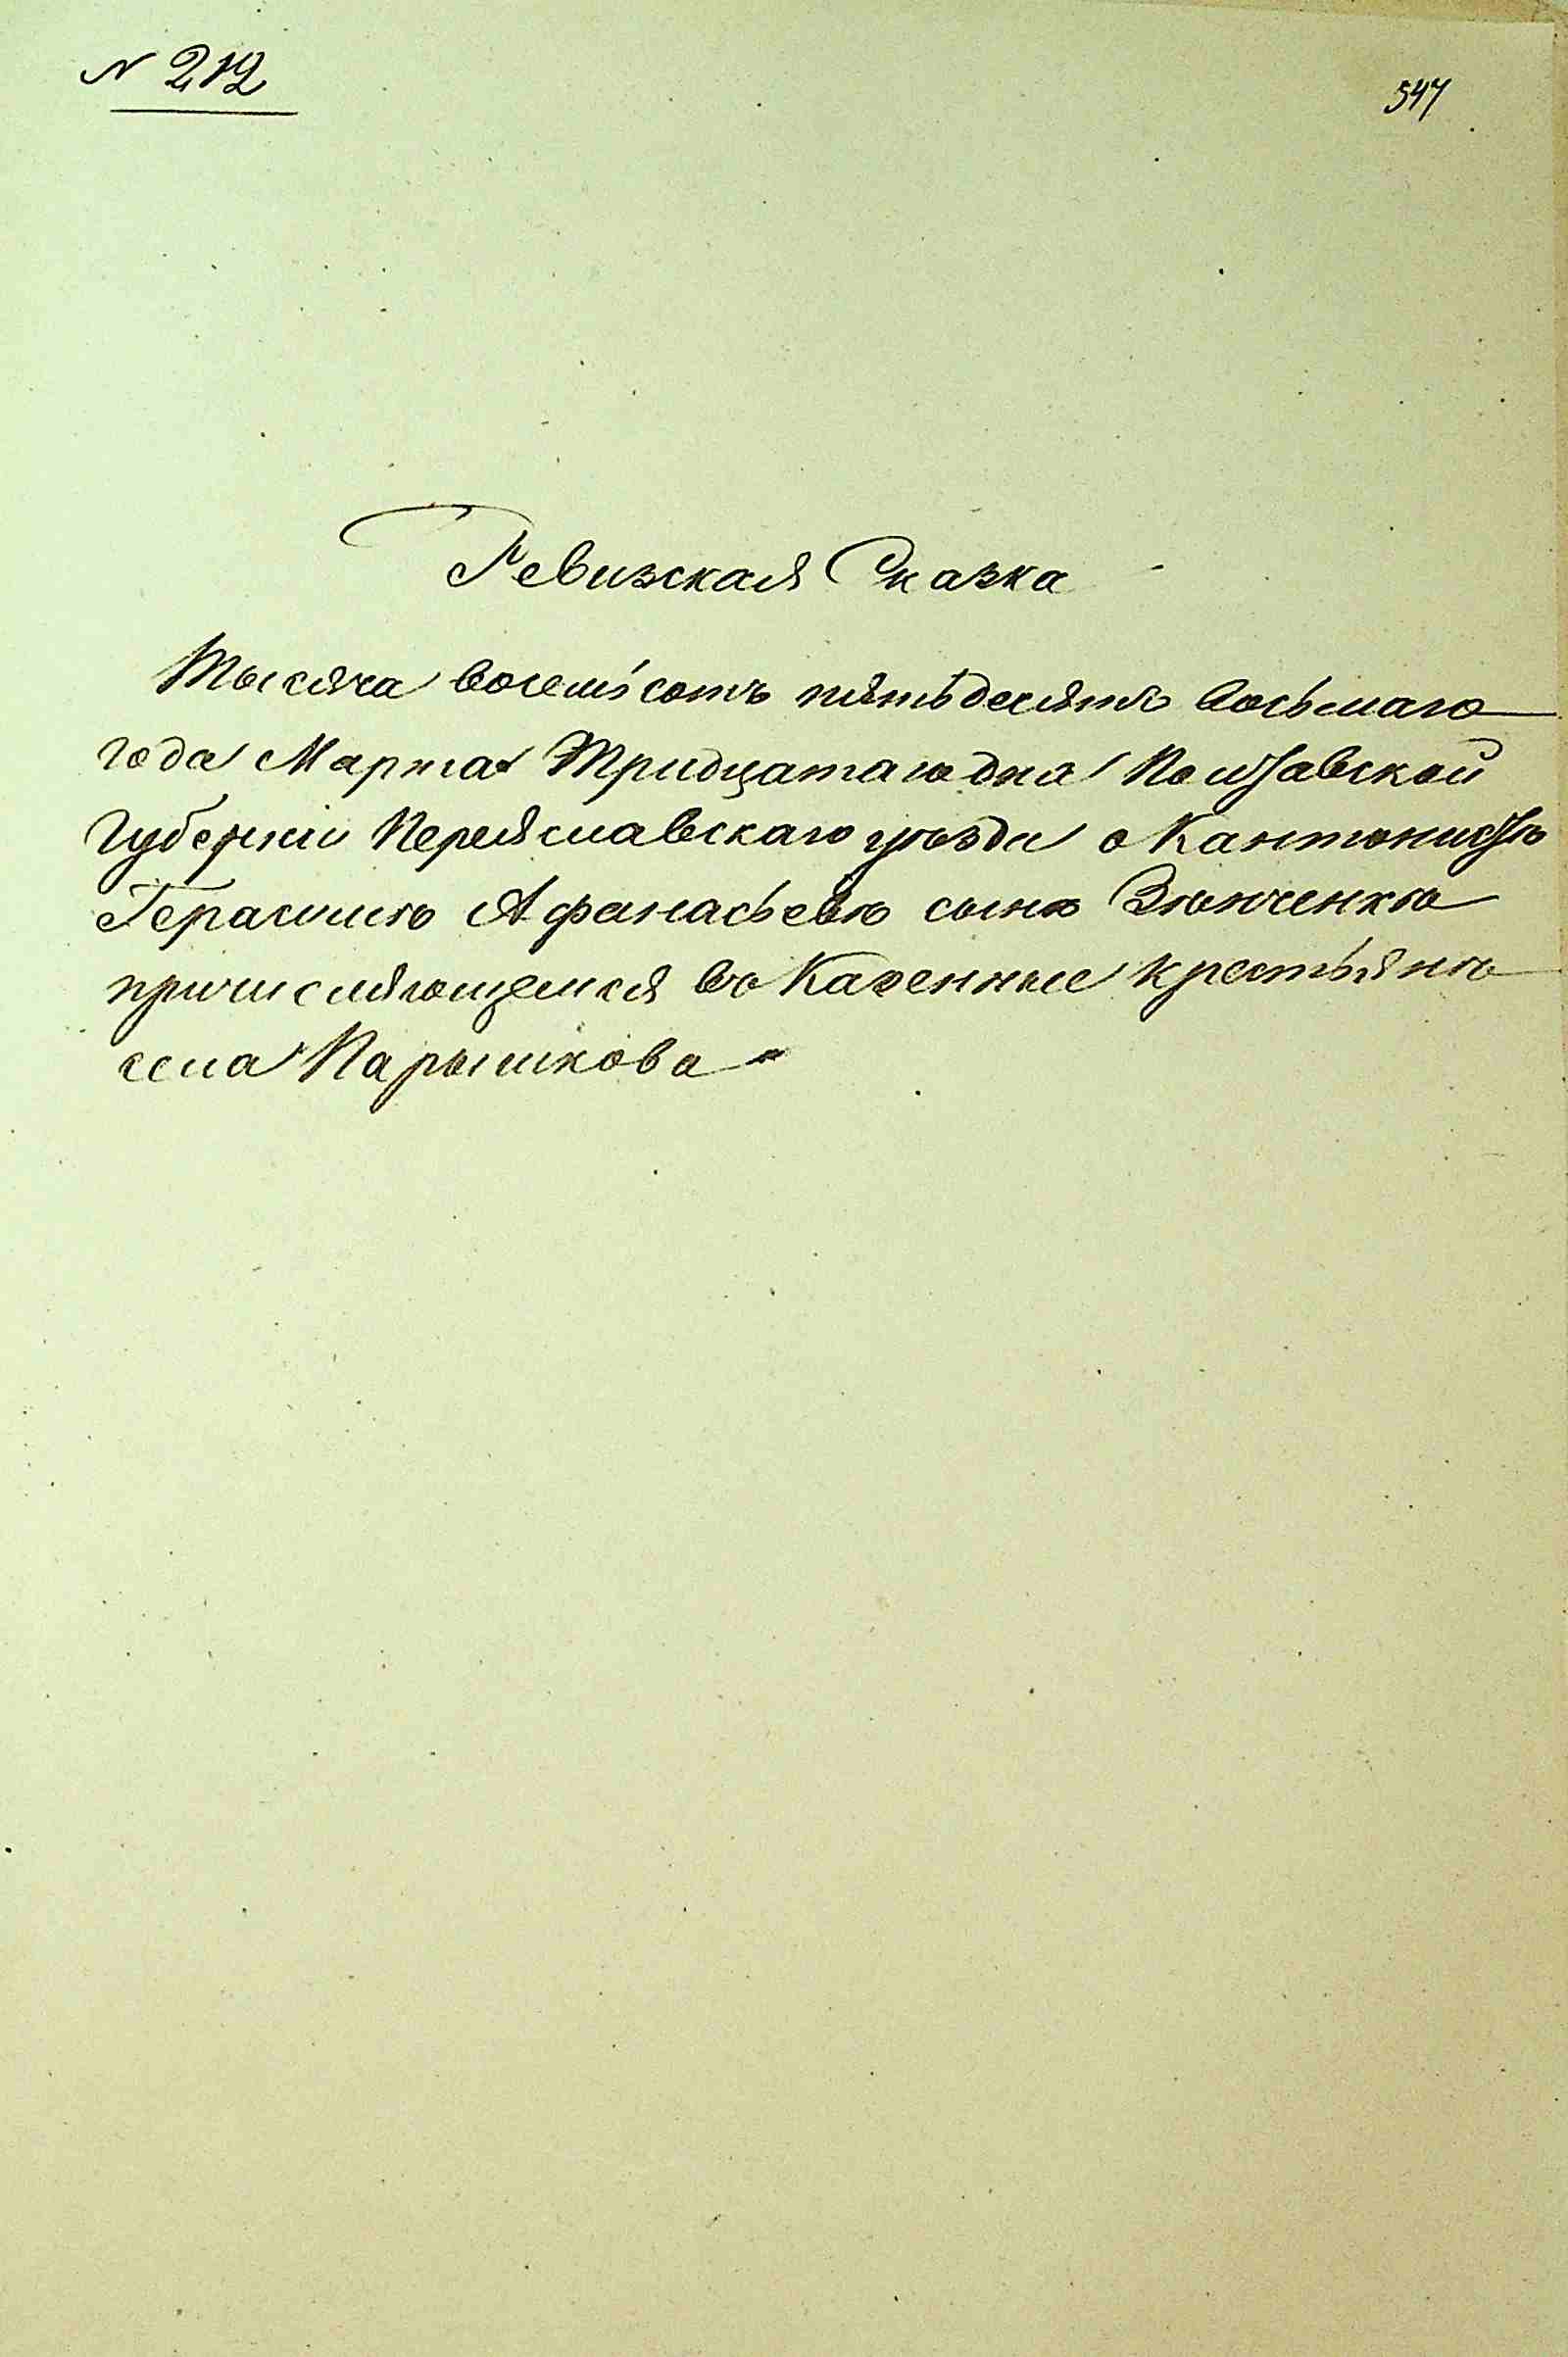 N 212
547
Ревизская Сказка
Тысяча восемьсотъ пятьдесятъ восьмаго
года Марта Тридцатаго дня Полтавской
Губерніи Переяславскаго уѣзда о Кантонистѣ
Герасимѣ Афанасьевѣ сынѣ Зѣнченкѣ
причисляющемся въ Казенные крестьянѣ
села Парышкова